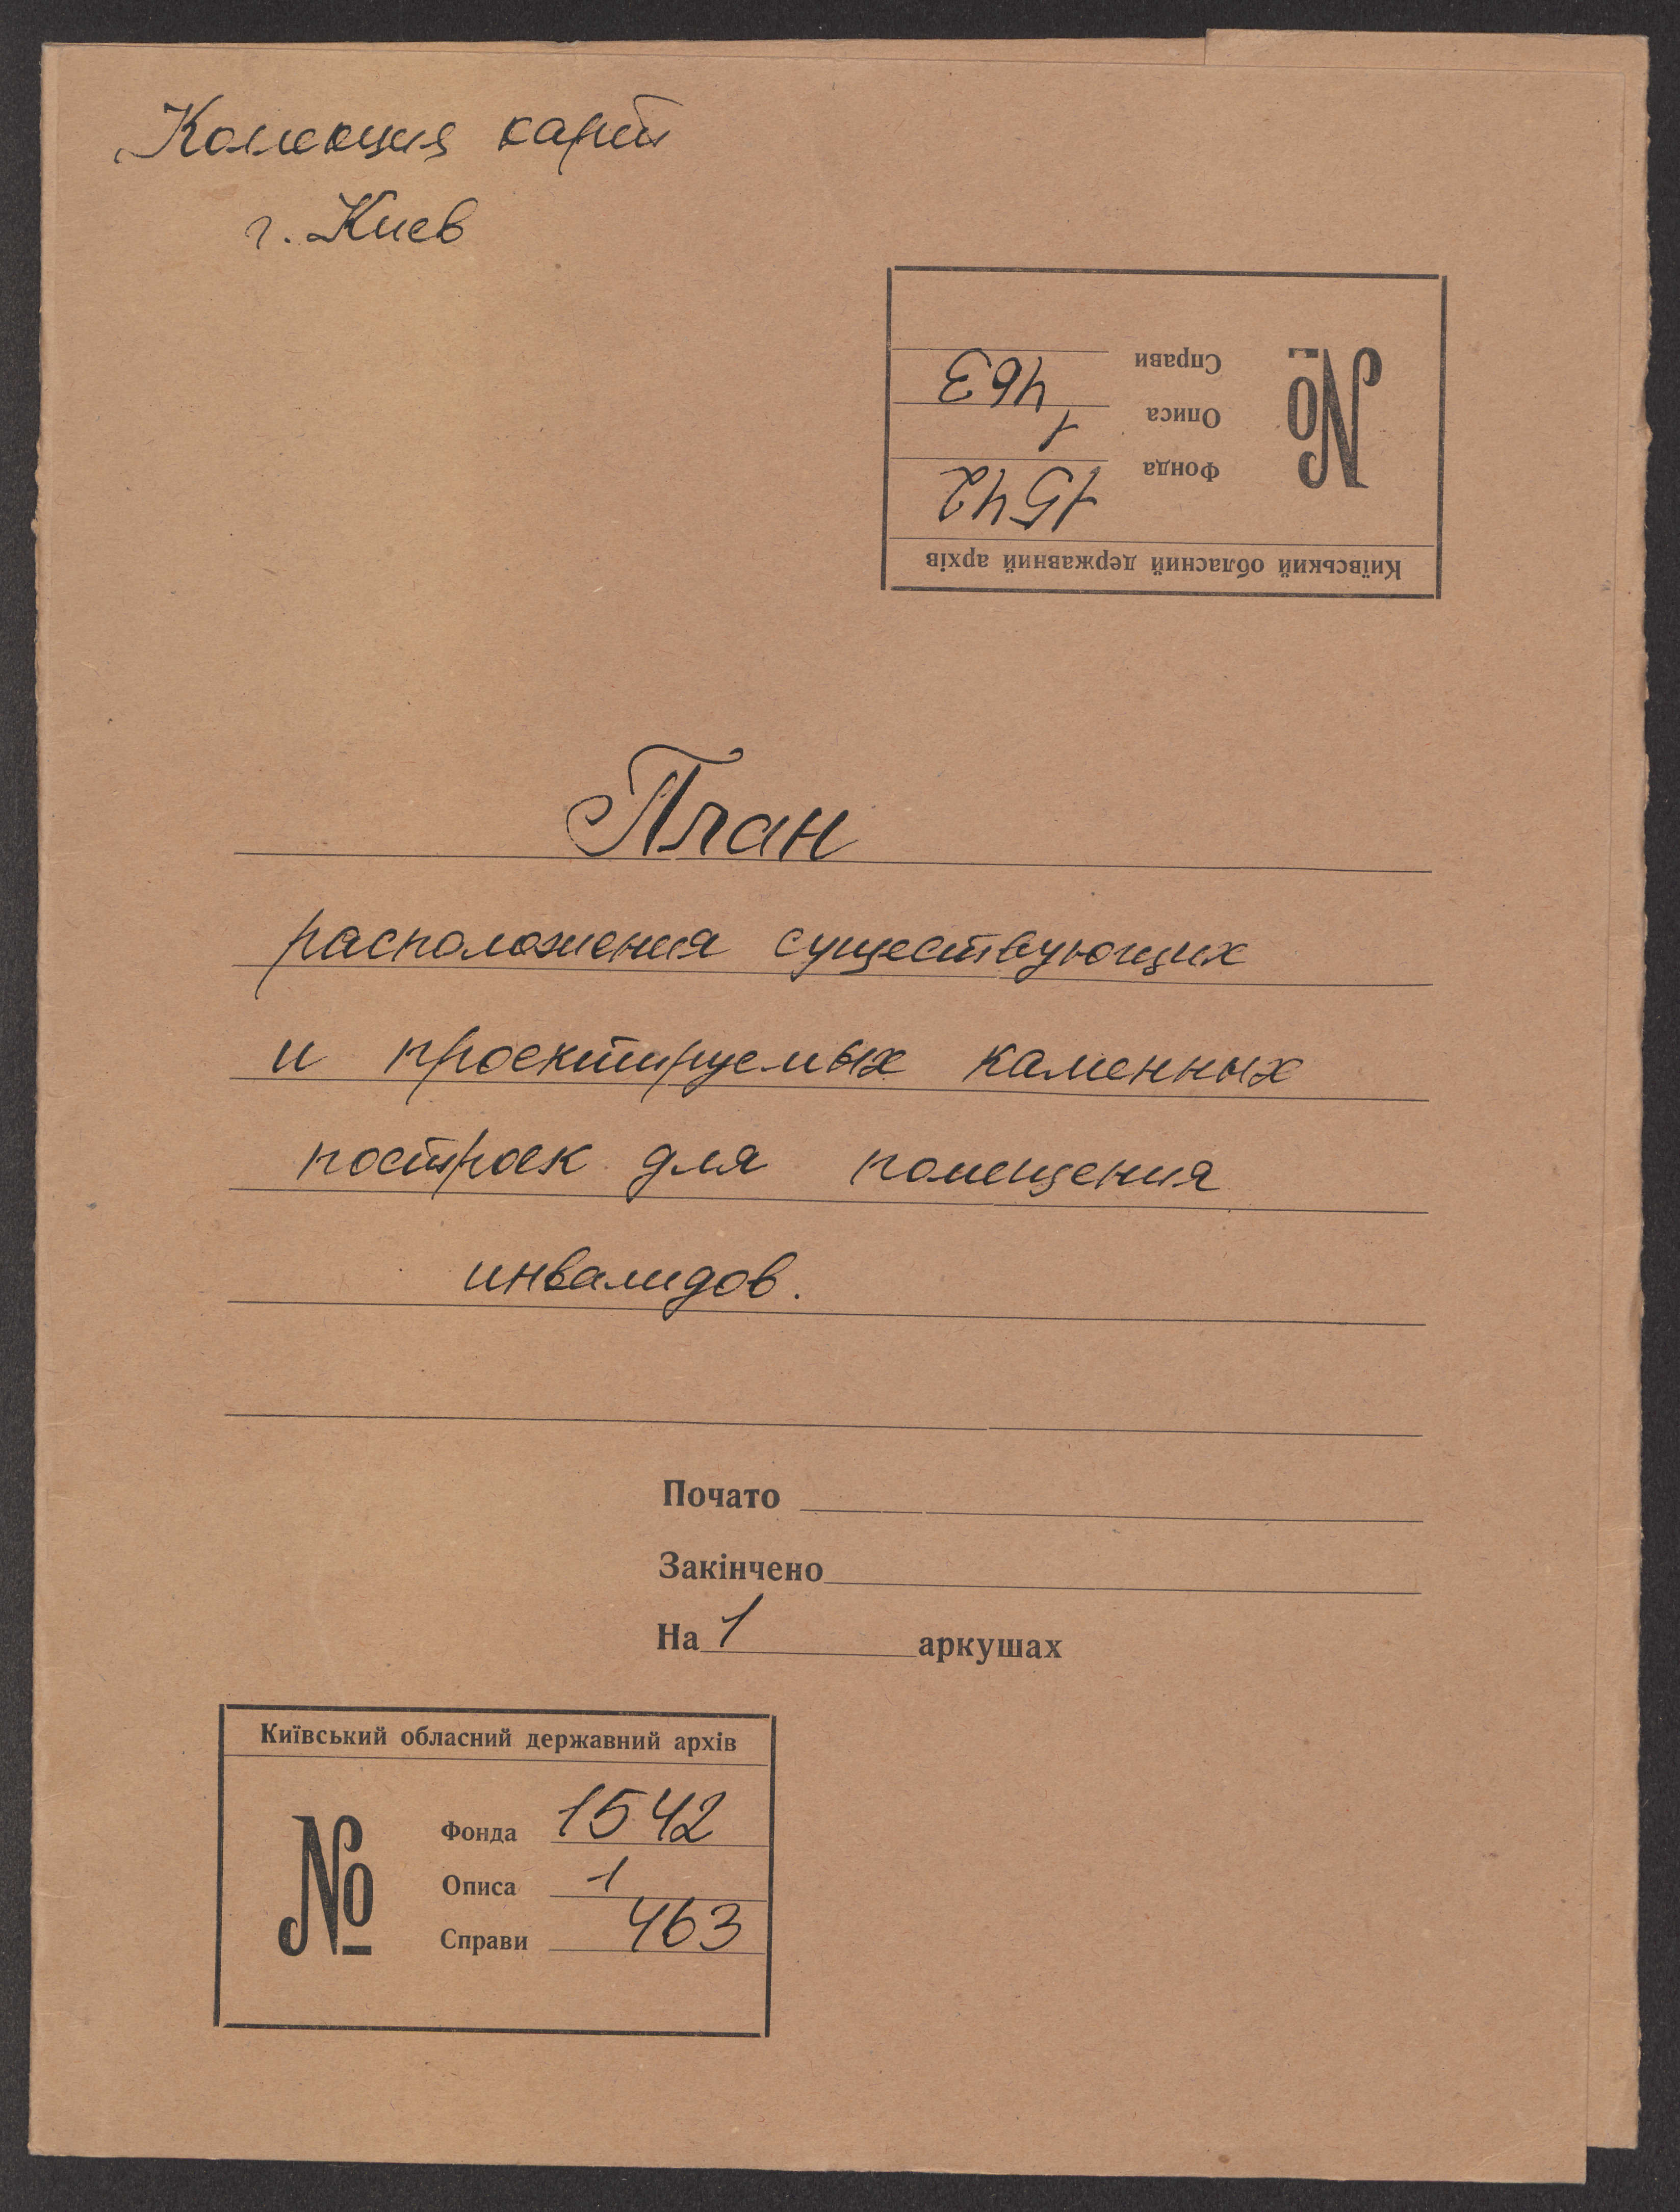 Колекция карт
г. Киев
Київський обласний державний архів
№
Фонда 1542
Описа 1
Справи 463
План
расположения существующих
и проектируемых каменных
построек для помещения
инвалидов.
Почато
Закінчено
На 1 аркушах
Київський обласний державний архів
№
Фонда 1542
Описа 1
Справи 463